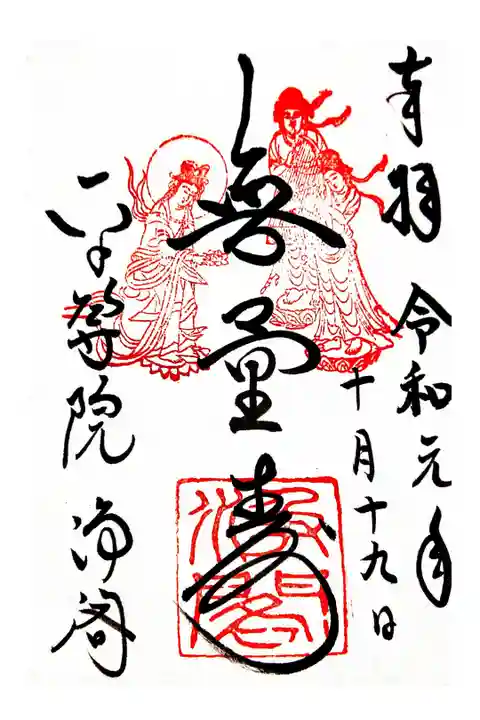 奉拝 令和元年
十月十九日
無量寿
平等院 浄閣